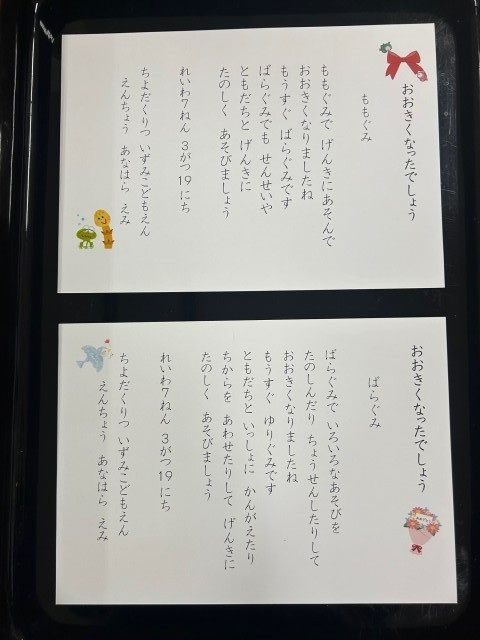 おおきくなったでしょう
ももぐみ
ももぐみで げんきにあそんで
おおきくなりましたね
もうすぐ ばらぐみです
ばらぐみでも せんせいや
ともだちと げんきに
たのしく あそびましょう
れいわ7ねん 3がつ19にち
ちよだくりつ いずみこどもえん
えんちょう あなはら えみ
おおきくなったでしょう
ばらぐみ
ばらぐみで いろいろなあそびを
たのしんだり ちょうせんしたりして
おおきくなりましたね
もうすぐ ゆりぐみです
ともだちと いっしょに かんがえたり
ちからを あわせたりして げんきに
たのしく あそびましょう
れいわ7ねん 3がつ19にち
ちよだくりつ いずみこどもえん
えんちょう あなはら えみ